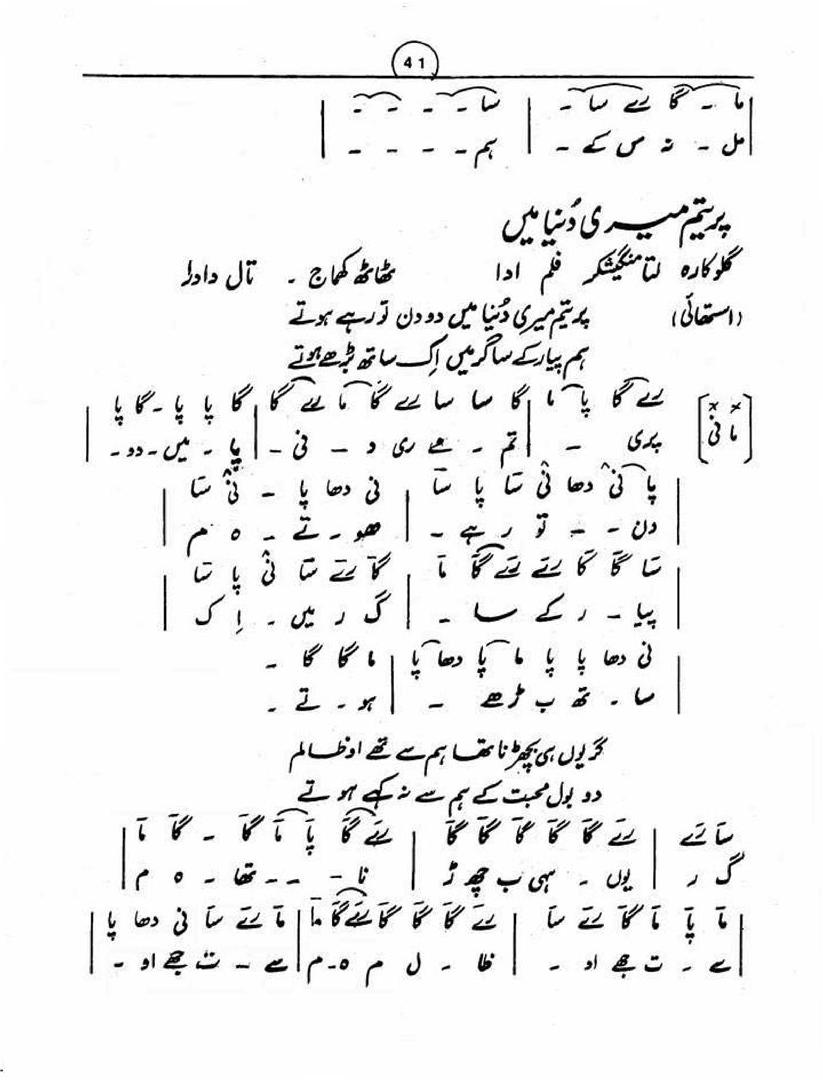 41
ما - گا رے سا - | سا - - - - |
مل - نہ س کے - | ہم - - - - |
پریتم میری دُنیا میں
گلوکارہ لتا منگیشکر فلم ادا ٹھاٹھ کھماج - تال دادرا
(استھائی) پریتم میری دُنیا میں دو دن تو رہے ہوتے
ہم پیار کے ساگر میں اِک ساتھ بڑھے ہوتے
[ما نی] رے گا پا ما | گا سا سا رے گا ما رے گا | گا پا پا - گا پا |
پری - | تم - مے ری د - نی - | یا - میں - دو - |
پا نی دھا نی سا پا سا | نی دھا پا - نی سا |
دن - - تو ر ہے - | ھو - تے - ہ م |
سا گا گا رے رے گا ما | گا رے سا نی پا سا |
پیا - ر کے سا - | گ ر میں - اِ ک |
نی دھا پا پا ما پا دھا پا | ما گا گا -
سا - تھ ب ڑھے - | ہو - تے -
گر یوں ہی بچھڑنا تھا ہم سے تھے او ظالم
دو بول محبت کے ہم سے نہ کہے ہوتے
سا رے | رے گا گا گا گا گا | رے گا پا ما گا - گا ما |
گ ر | یوں - ہی ب چھ ڑ | نا - - - تھا - ہ م |
ما پا ما گا رے سا | رے گا گا گا رے گا ما | ما رے سا نی دھا پا |
سے - ت جھے او - | ظا - ل م ہ - م | سے - ت جھے او - |